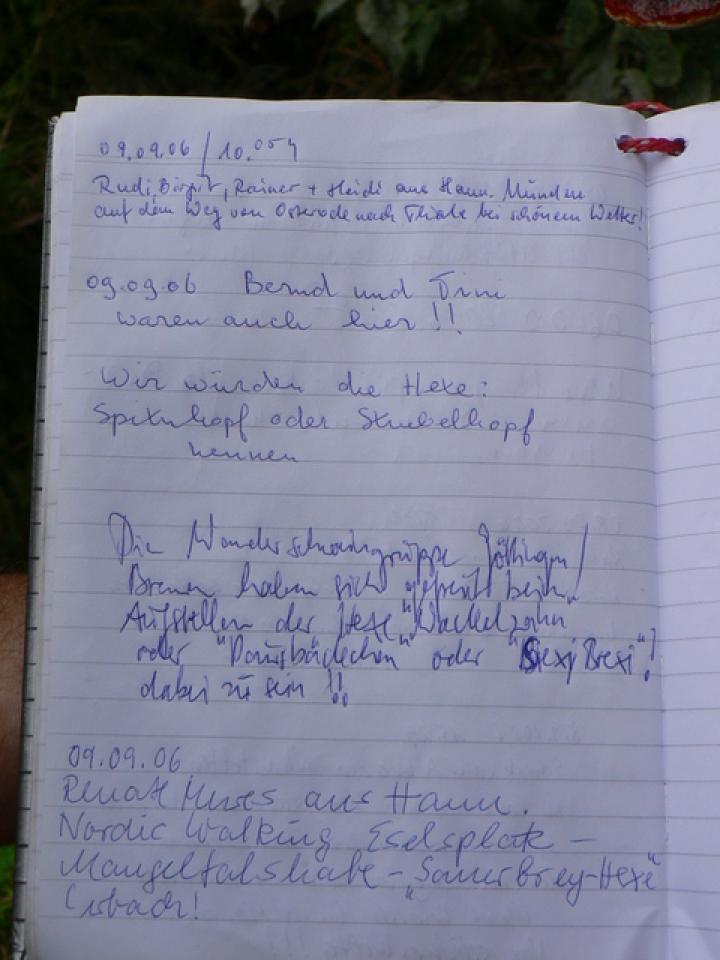 09.09.06 / 10.05
Rudi, Birgit, Rainer + Heidi aus Hann. Münden
auf dem Weg von Osterode nach Thale bei schönem Wetter!
09.09.06 Bernd und
waren auch hier !!
Wir würden die Hexe:
oder Strubelkopf
nennen
Die Göttingen /
Bremen haben sich gefreut beim
Aufstellen der Hexe "Wackelzahn
oder "Pausbäckchen" oder "Sexy Brexi"!
dabei zu sein !!
09.09.06
Renate aus Hann.
Nordic Walking Eselsplatz -
- "Sauerbrey-Hexe"